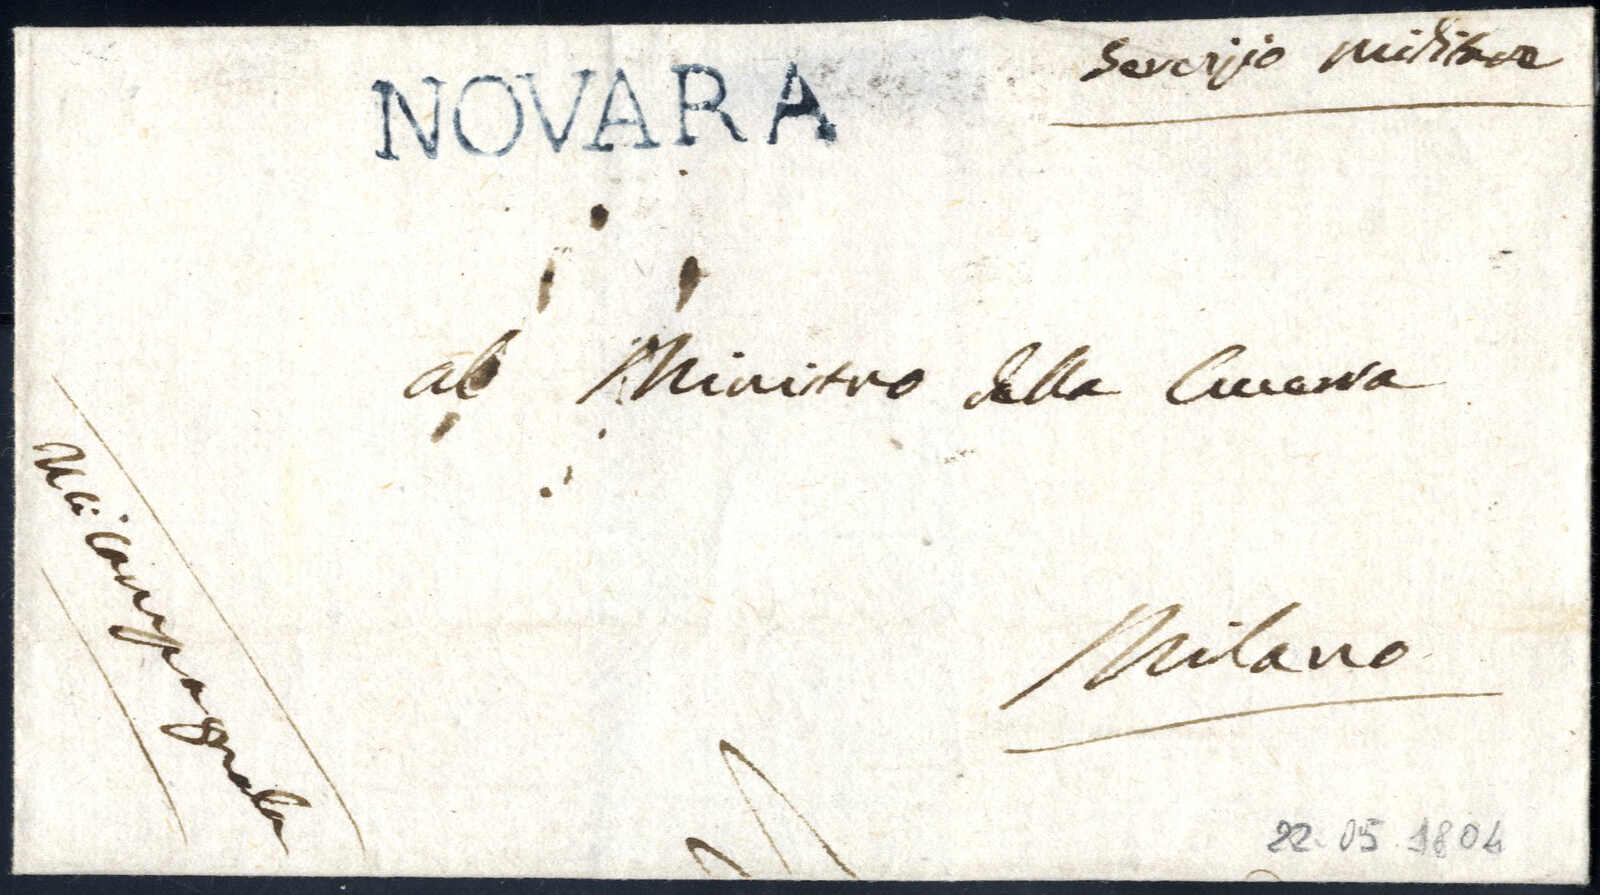 NOVARA
Servizio militare
al Ministro della Guerra
Milano
22.05.1804